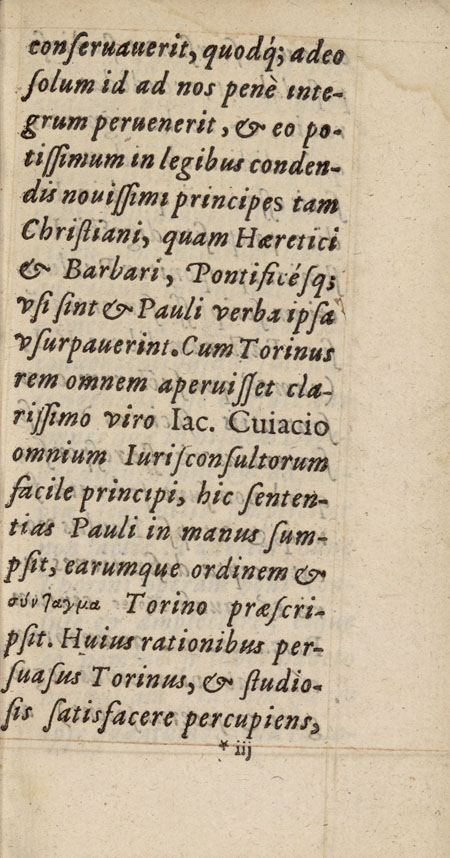 conſeruauerit, quodq́; adeo
ſolum id ad nos penè inte-
grum peruenerit, & eo po-
tiſſimum in legibus conden-
dis nouiſſimi principes tam
Chriſtiani, quam Hæretici
& Barbari, Pontificéſq;
vſi ſint & Pauli verba ipſa
vſurpauerint. Cum Torinus
rem omnem aperuiſſet cla-
riſſimo viro Iac. Cuiacio
omnium Iuriſconſultorum
facile principi, hic ſenten-
tias Pauli in manus ſum-
pſit, earumque ordinem &
σύνταγμα Torino præſcri-
pſit. Huius rationibus per-
ſuaſus Torinus, & ſtudio-
ſis ſatisfacere percupiens,
* iij